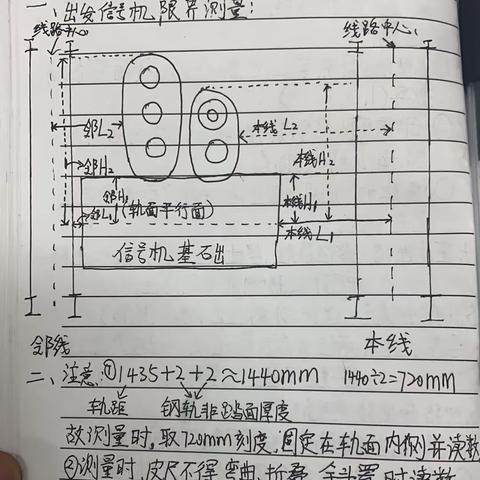 一、出发信号机限界测量:
线路中心 线路中心
邻L2 本线L2
邻H2 本线H2
邻H1 (轨面平行面) 本线H1
邻L1 本线L1
信号机基石出
邻线 本线
二、注意:①1435+2+2≈1440mm 1440÷2=720mm
轨距 钢轨非踏面厚度
故测量时,取720mm刻度,固定在轨面内侧并读数
②测量时,皮尺不得弯曲、折叠、 时读数